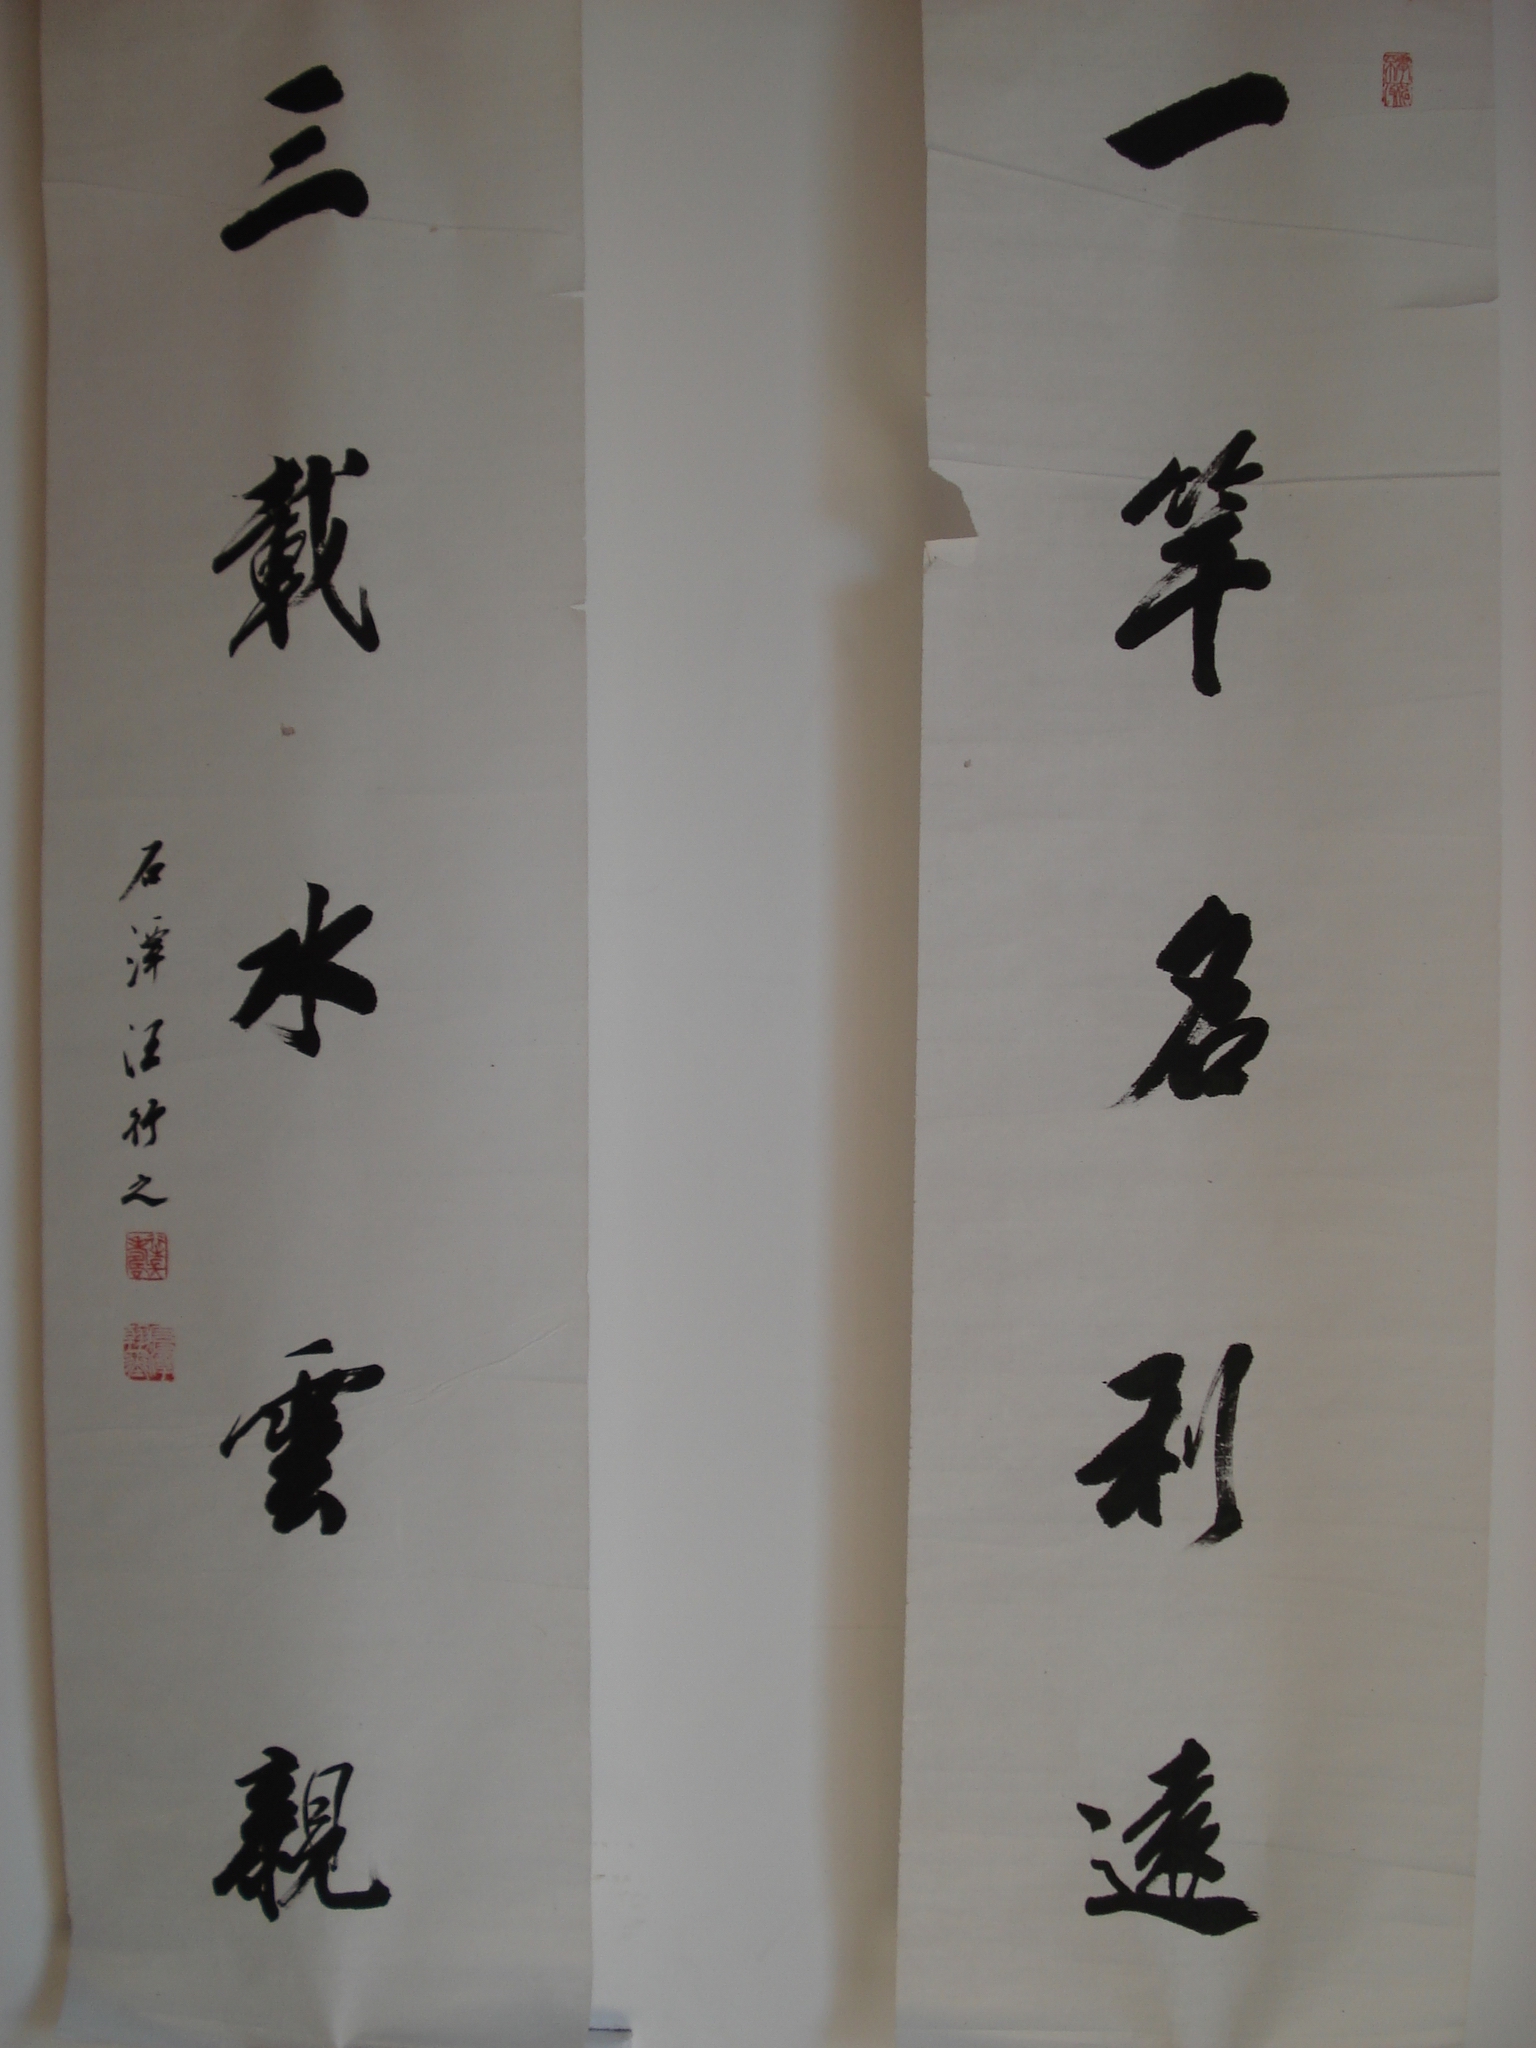 一竿名利遠
三載水雲親
石潭汪行之